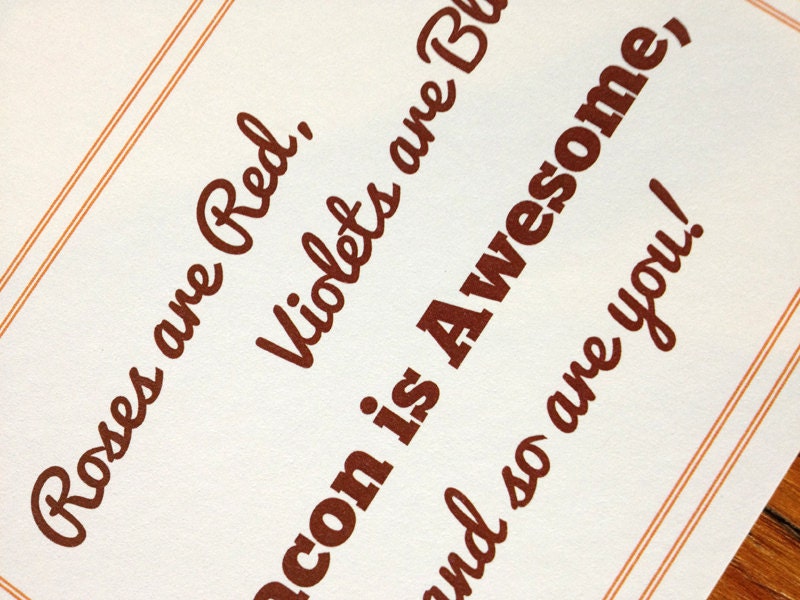 Roses are Red,
Violets are Bl
acon is Awesome,
and so are you!